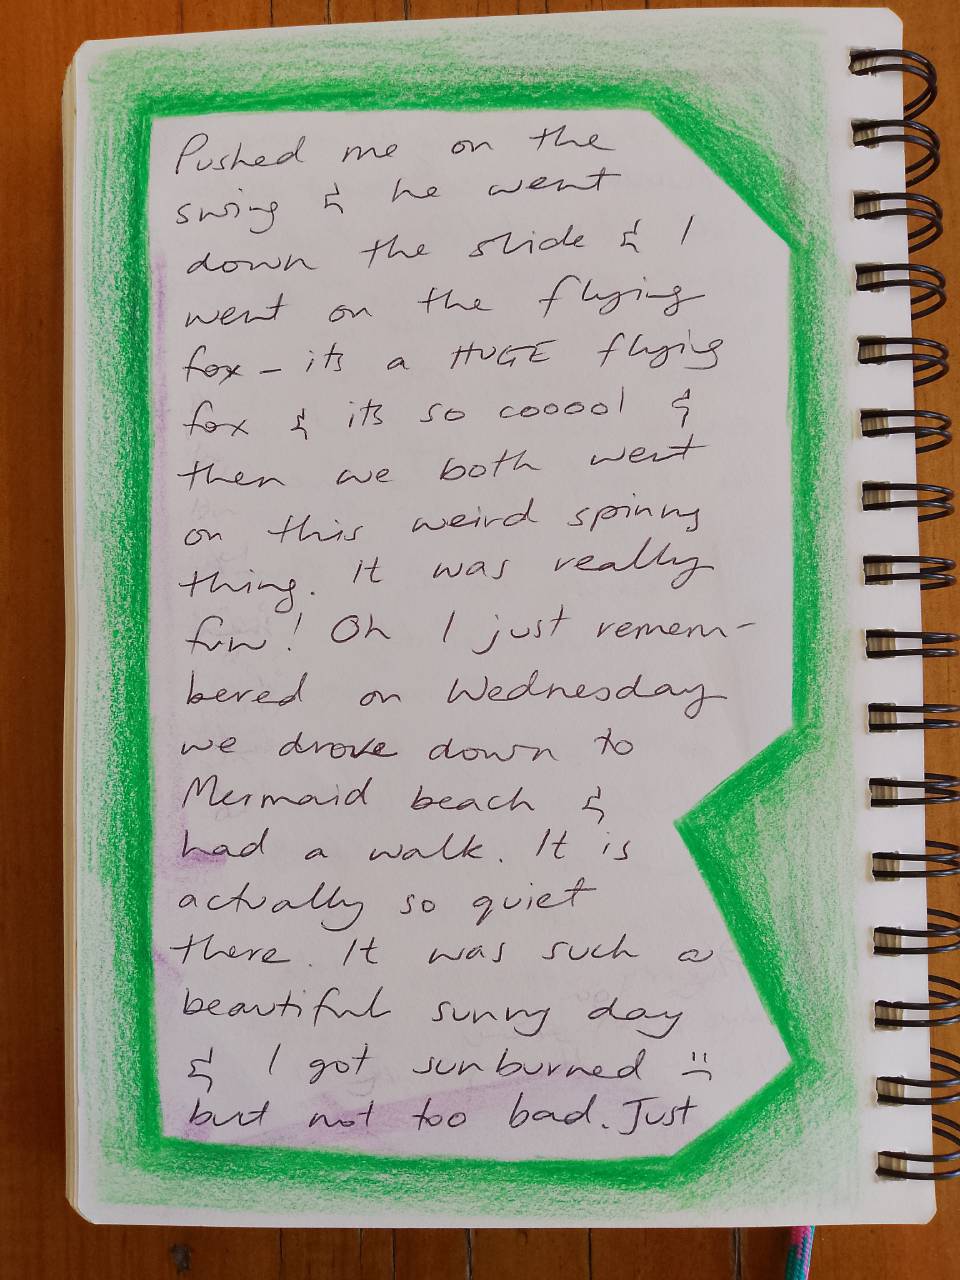 Pushed me on the
swing & he went
down the slide & I
went on the flying
fox – its a HUGE flying
fox & its so cooool &
then we both went
on this weird spinny
thing. It was really
fun! Oh I just remem-
bered on Wednesday
we drove down to
Mermaid beach &
had a walk. It is
actually so quiet
there. It was such a
beautiful sunny day
& I got sunburned :(
but not too bad. Just